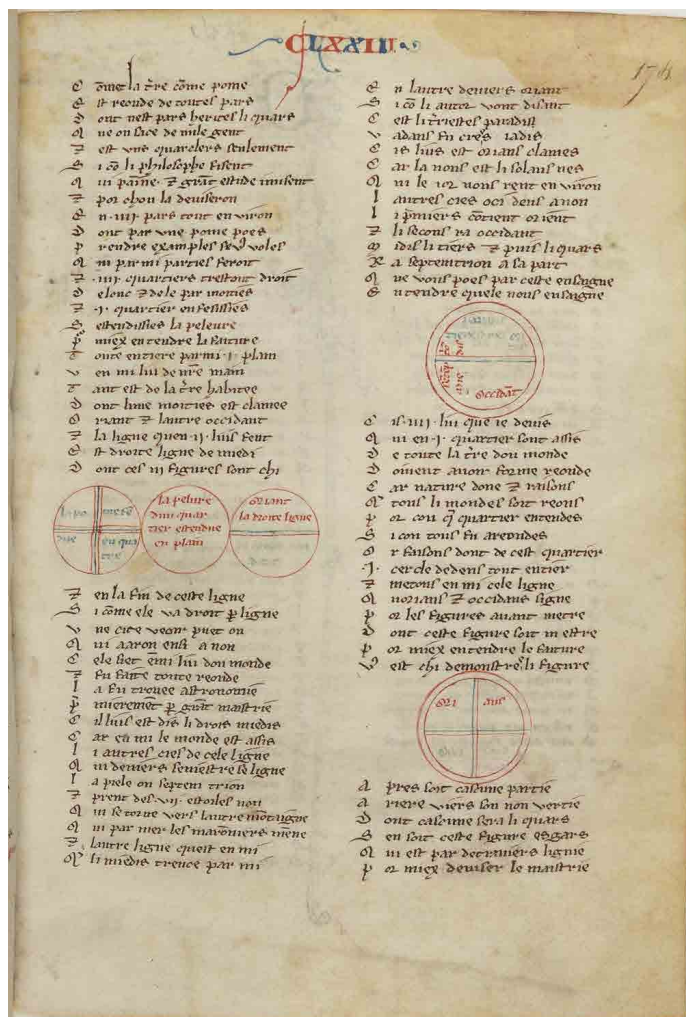 CLXXIII
174
Coment la t̄re cōme pome
Est reonde de toutes pars
Dont nest pars hertes li quars
Que on sace de nule gent
⁊ est vns quarelers seulement
Si cō li philosophe fisent
Qui paine ⁊ grāt estude misent
⁊ por chou la deviseron
En ·iiii· pars tout en viron
Dont par vne pome poes
Prendre examples se v̄ voles
Qui par mi parties seroit
⁊ ·iiii· quartiers trestout droit
De lonc ⁊ de le par moities
⁊ ·i· quartier en fesissies
Sestendissies la peleure
P̄ miex entendre li faiture
Toute entiere parmi ·i· plain
V en mi liu de vr̄e main
Tant est de la t̄re habitee
Dont lune moities est clamee
Oriant ⁊ lautre occidant
⁊ la ligne quen ·ii· lius fent
Est droite ligne de miedi
Dont ces iii figures sont chi
la po mete
due en qua tre
la pelure
dun quar
tier estendue
en plain
oriant
la droite ligne
⁊ en la fin de ceste ligne
Si cōme ele va droit p̱ ligne
Vne cite veoir puet on
Qui aaron ensi a non
Cele siet ēmi liu don monde
⁊ fu faite toute reonde
La fu trouee astronomie
P̄mierement p̱ grāt maistrie
Cil luis est dis li drois miedis
Car en mi le monde est assis
Li autres cies de cele ligne
Qui deviers seniestre se ligne
Lapiele on septemtrion
⁊ prent des ·vii· estoiles non
Qui se torne vers lautre montaigne
Qui par mer les maroniers maine
⁊ lautre ligne quest en mi
Que li miedis trence par mi
En lautre deviers oriant
Si cō li autor vont disant
Cest li t̄riestres paradis
V adans fu crees iadis
Cis lius est orians clames
Car la nous est li solaus nes
Qui le ior nous rent en viron
Lautres cies oci dens a non
Li p̄miers cōtient orient
⁊ li secons ra occidant
Midis li tiers ⁊ puis li quars
Ra septemtrion a sa part
Que vous poes par ceste ensaigne
Entendre quele nous ensaigne
occidāt
Cis ·iiii· liu que ie devis
Qui en ·i· quartier sont assis
De toute la t̄re dou monde
Doivent avoir forme reonde
Car nature done ⁊ raisons
Que tous li mondes soit reons
Por cou q̄ quartier entendes
Si con tous fu areondes
Or faisons dont de cest quartier
·i· cercle dedens tout entier
⁊ metons en mi cele ligne
Quorians ⁊ occidans signe
Por les figures avant metre
Dont ceste figure soit mestre
Por miex entendre le faiture
V est chi demonstree li figure
ori ans
Apres soit cascune partie
Ariere viers son non vertie
Dont cascune sera li quars
Sen soit ceste figure esgars
Qui est par detraviers lignie
Por miex deviser le maistrie